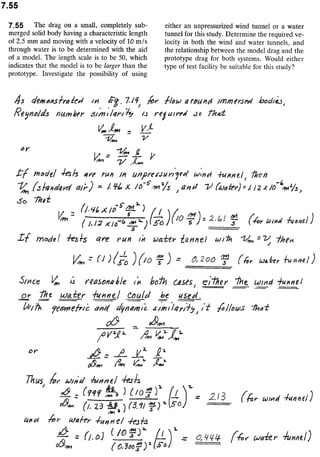 7.55
7.55 The drag on a small, completely sub-
merged solid body having a characteristic length
of 2.5 mm and moving with a velocity of 10 m/s
through water is to be determined with the aid
of a model. The length scale is to be 50, which
indicates that the model is to be larger than the
prototype. Investigate the possibility of using
either an unpressurized wind tunnel or a water
tunnel for this study. Determine the required ve-
locity in both the wind and water tunnels, and
the relationship between the model drag and the
prototype drag for both systems. Would either
type of test facility be suitable for this study?
As demonstrated in Eq. 7.19, for flow around immersed bodies,
Reynolds number similarity is required so that
Vm lm / νm = V l / ν
or
Vm = νm/ν l/lm V
If model tests are run in unpressurized wind tunnel, then
νm (standard air) = 1.46 x 10⁻⁵ m²/s, and ν (water) = 1.12 x 10⁻⁶ m²/s,
so that
Vm = (1.46 x 10⁻⁵ m²/s) / (1.12 x 10⁻⁶ m²/s) (1/50) (10 m/s) = 2.61 m/s (for wind tunnel)
If model tests are run in water tunnel with νm = ν, then
Vm = (1) (1/50) (10 m/s) = 0.200 m/s (for water tunnel)
Since Vm is reasonable in both cases, either the wind tunnel
or the water tunnel could be used.
With geometric and dynamic similarity, it follows that
𝒟 / ρV²l² = 𝒟m / ρm Vm² lm²
or
𝒟/𝒟m = ρ/ρm V²/Vm² l²/lm²
Thus, for wind tunnel tests
𝒟/𝒟m = (999 kg/m³) / (1.23 kg/m³) (10 m/s)² / (1/50)² = 2.13 (for wind tunnel)
and for water tunnel tests
𝒟/𝒟m = (1.0) (10 m/s)² (1/50)² = (for water tunnel)